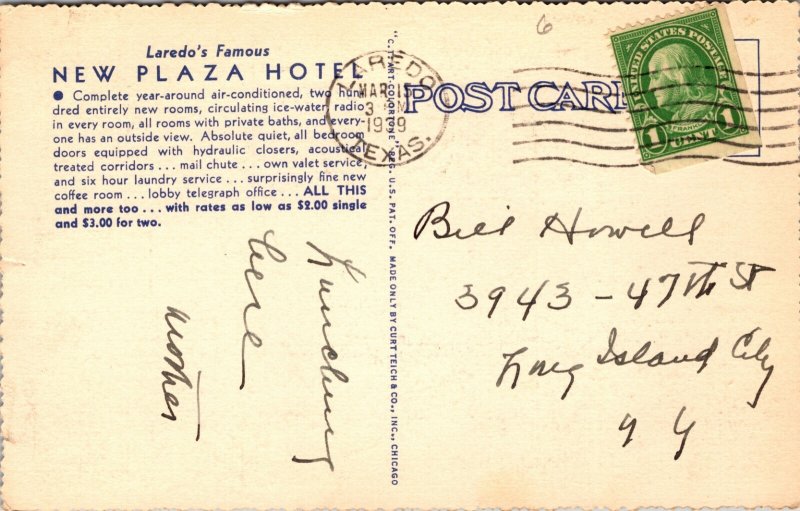 6
Laredo's Famous
NEW PLAZA HOTEL
● Complete year-around air-conditioned, two hun-
dred entirely new rooms, circulating ice-water, radio
in every room, all rooms with private baths, and every-
one has an outside view. Absolute quiet, all bedroom
doors equipped with hydraulic closers, acoustical
treated corridors ... mail chute ... own valet service,
and six hour laundry service ... surprisingly fine new
coffee room ... lobby telegraph office ... ALL THIS
and more too ... with rates as low as $2.00 single
and $3.00 for two.
Lunching
here
Mother
"C.T. ART-COLORTONE" REG. U.S. PAT. OFF. MADE ONLY BY CURT TEICH & CO., INC., CHICAGO
LAREDO
MAR 15
3 PM
1939
TEXAS.
POST CARD
UNITED STATES POSTAGE
FRANKLIN
1 CENT 1
Bill Howell
3943 - 47th St
Long Island City
N Y